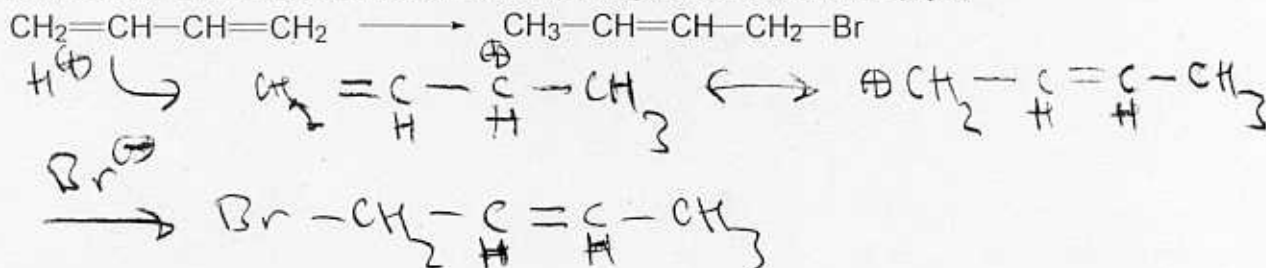 CH₂=CH—CH=CH₂ ⟶ CH₃—CH=CH—CH₂—Br
H⊕ CH₂=CH—C⊕H—CH₃ ⟷ ⊕CH₂—CH=CH—CH₃
Br⊖
⟶ Br—CH₂—CH=CH—CH₃